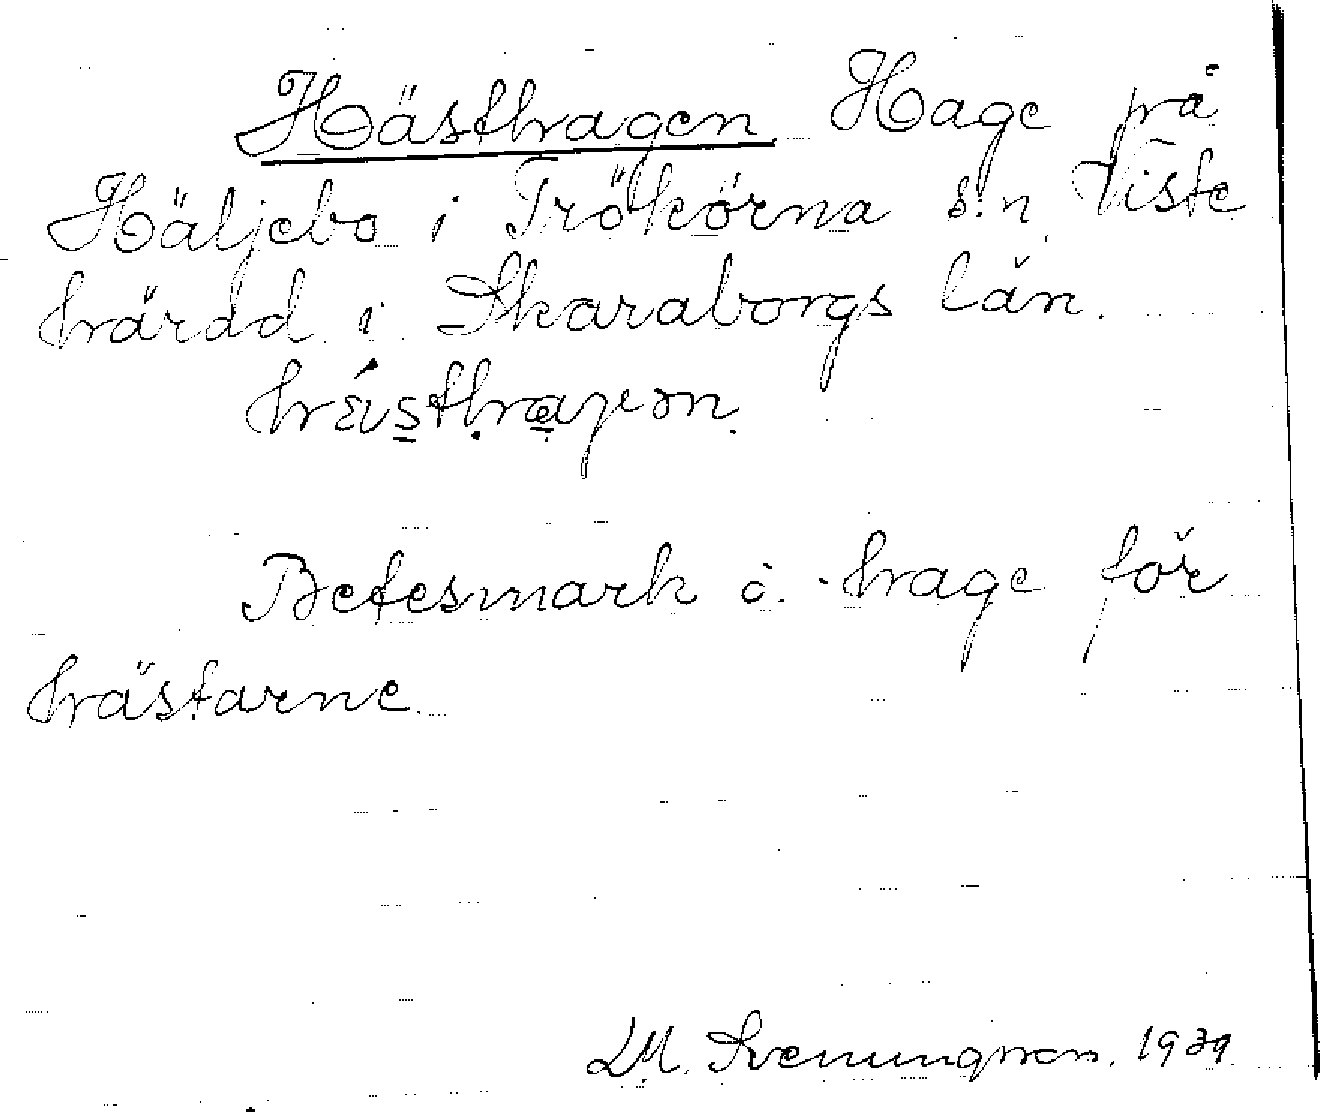 Hästhagen Hage på
Häljebo i Trökörna s:n Viste
härad i Skaraborgs län.
Betesmark o. hage för
hästarne.
Svenungsson. 1939